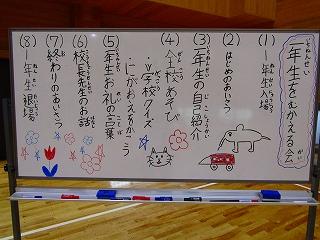 一年生をむかえる会
(1) 一年生入場
(2) はじめのあいさつ
(3) 一年生の自己紹介
(4) 全校あそび
・〇×学校クイズ
・にがおえをかこう
(5) 一年生お礼の言葉
(6) 校長先生のお話
(7) 終わりのあいさつ
(8) 一年生退場